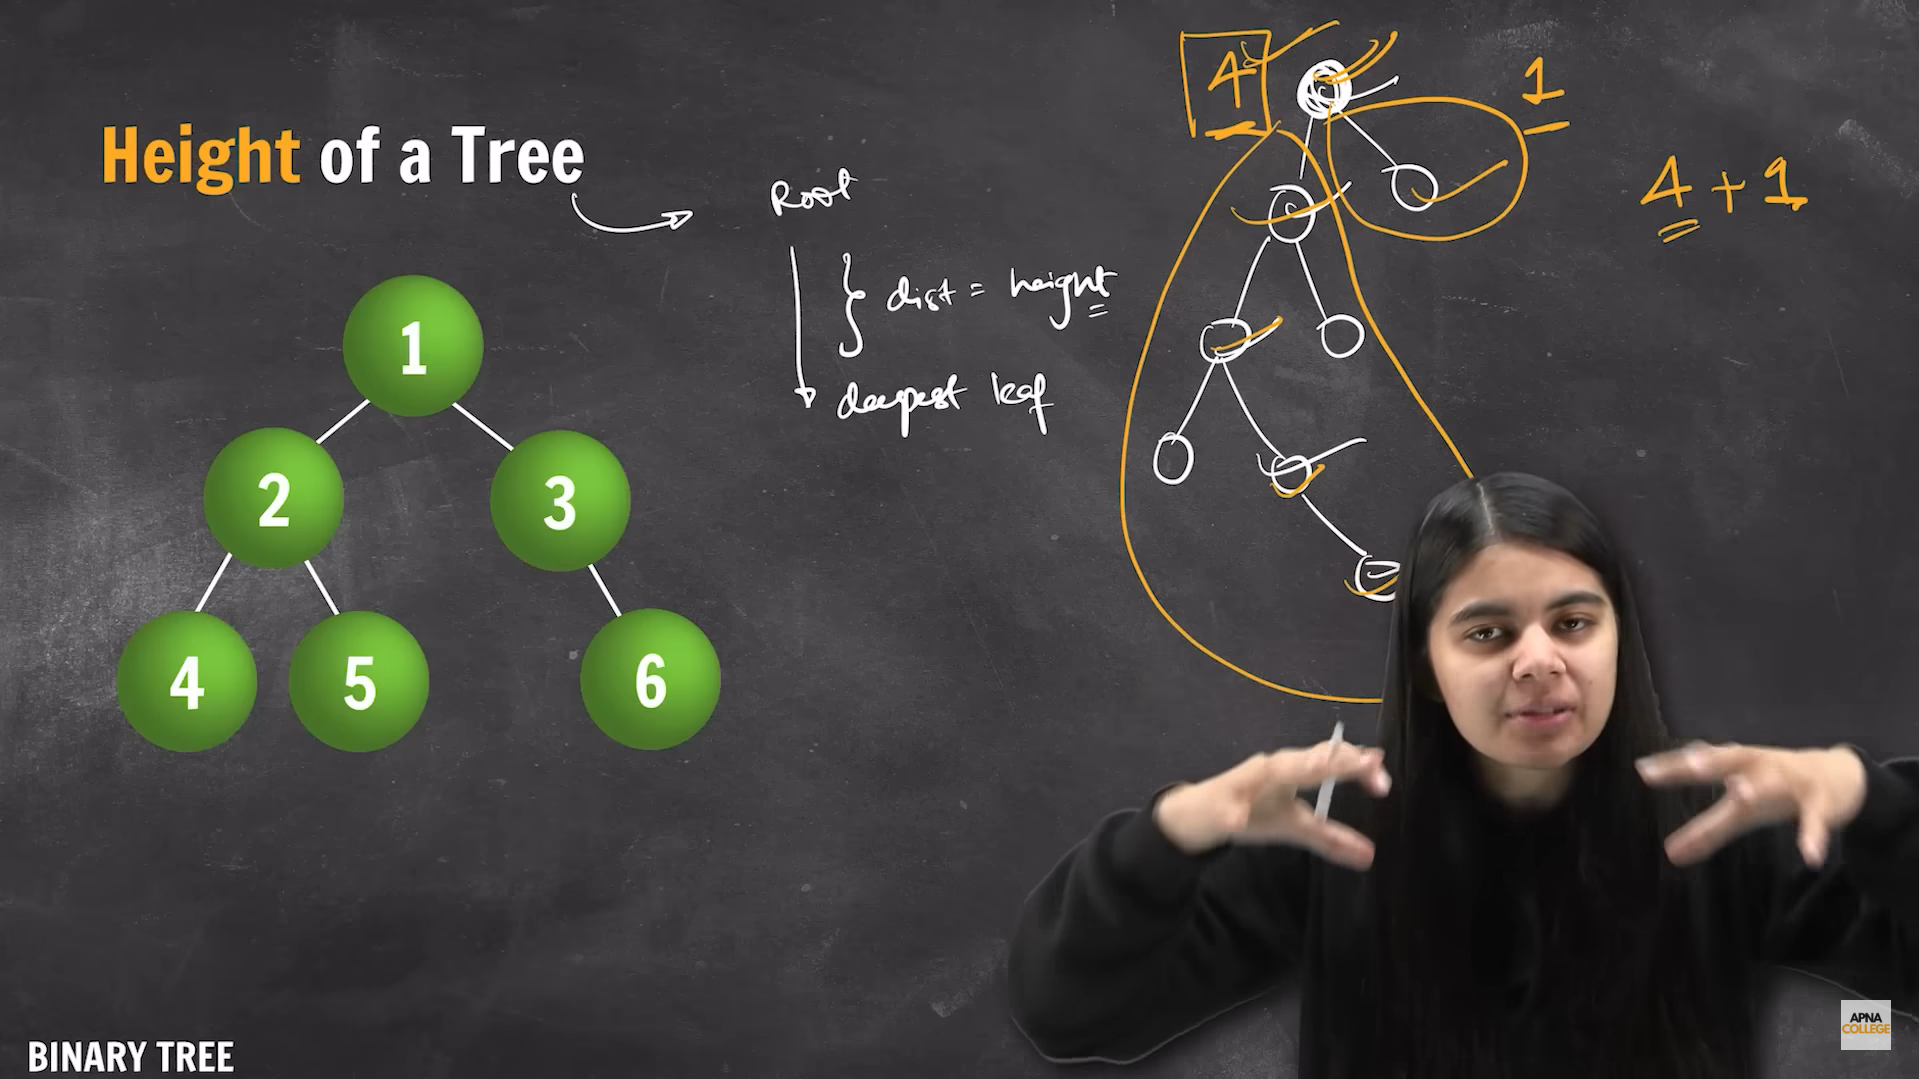 Height of a Tree
Root
dist = height
deepest leaf
1
2
3
4
5
6
4
1
4 + 1
BINARY TREE
APNA
COLLEGE